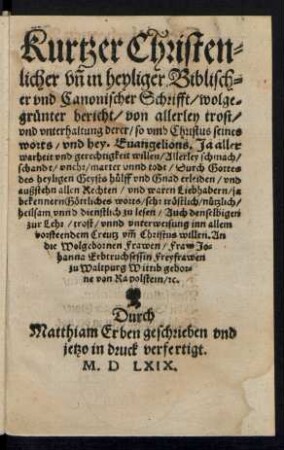 Kurtzer Christen-
licher vñ in heyliger Biblisch-
er vnd Canonischer Schrifft / wolge-
grünter bericht / von allerley trost /
vnd vnterhaltung derer / so vmb Christus seines
worts / vnd hey. Euangelions. Ja aller
warheit vnd gerechtigkeit willen / Allerley schmach /
schandt / vneht / marter vnnd todt / Durch Gottes
des heyligen Geysts hülff vnd Gnad erleiden / vnd
außstehn allen Rechten / vnd waren Liebhabern / ja
bekennern Göttliches worts / sehr tröstlich / nützlich /
heilsam vnnd dienstlich zu lesen / Auch denselbigen
zur Lehr / trost / vnnd vnterweisung inn allem
vorstehendem Creutz vm̃ Christus willen. An
die Wolgebornen Frawen / Fraw Jo-
hanna Erbtruchsessin Freyfrawen
zu Waltpurg Witib gebor-
ne von Rapolstein / ec.
Durch
Matthiam Erben geschrieben vnd
jetzo in druck verfertigt.
M. D LXIX.